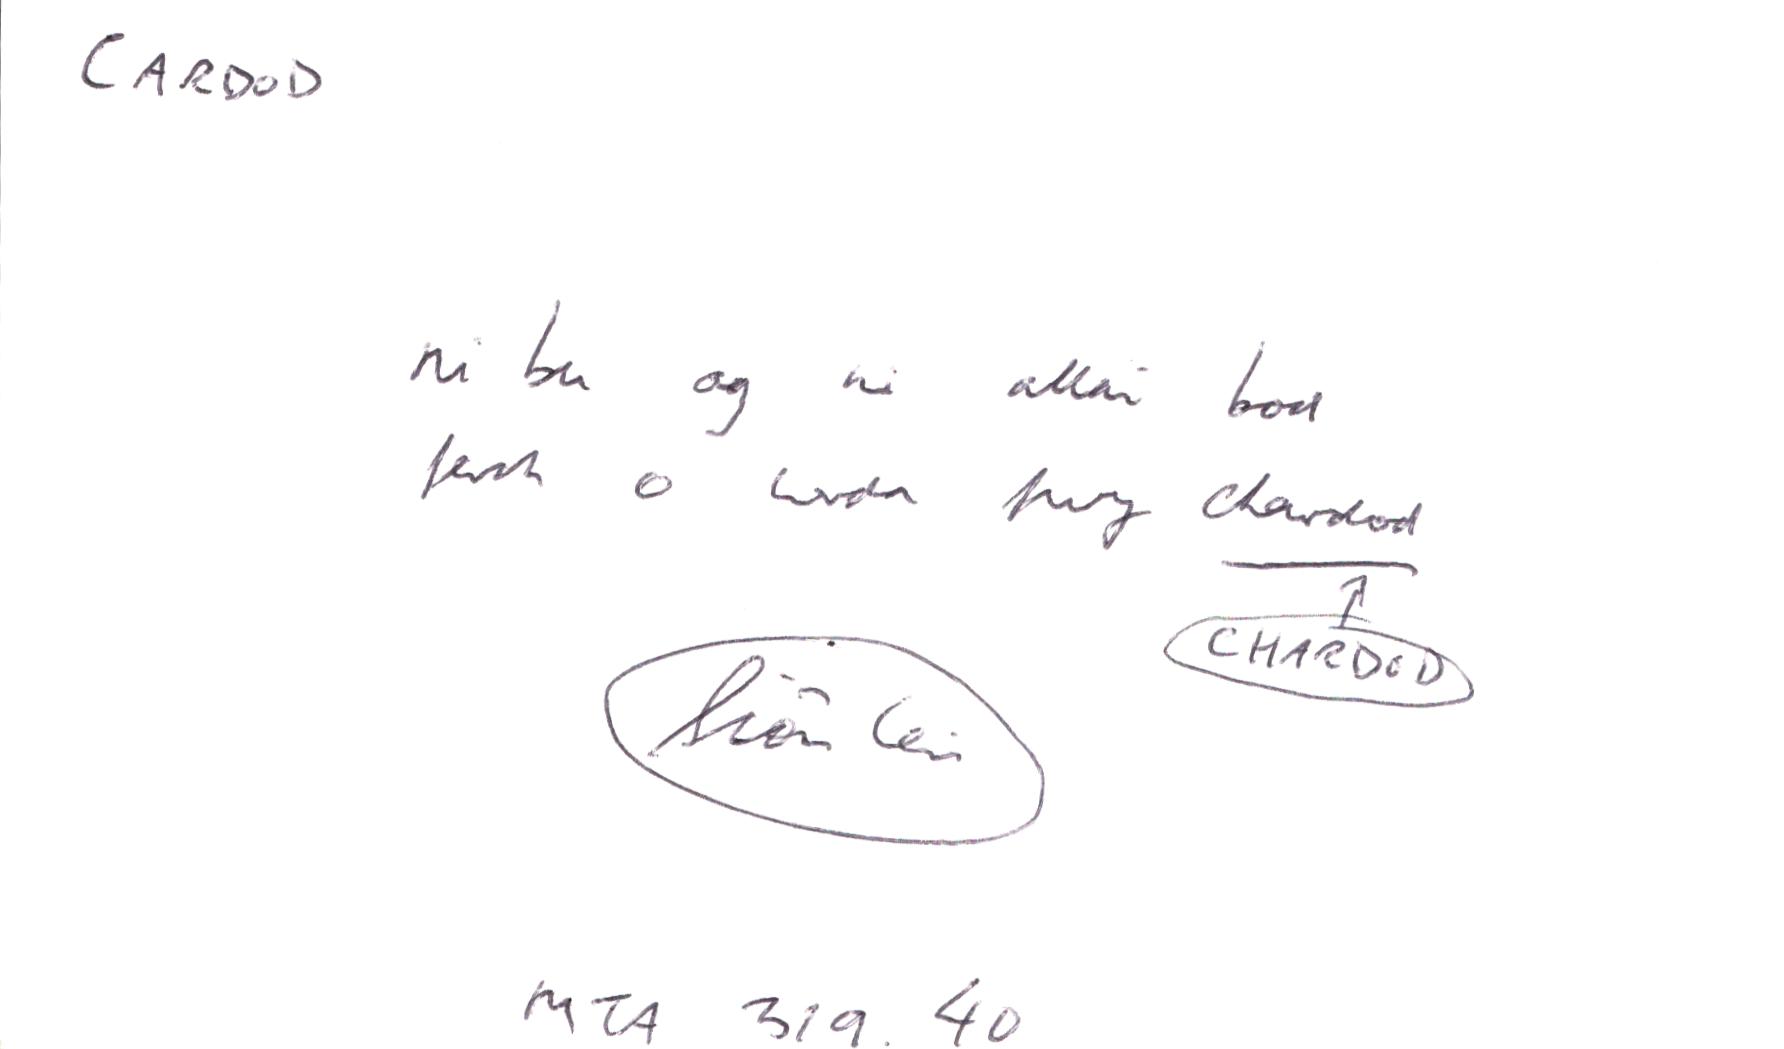 CARDOD
ni bu ag ni allai bod
ferch o wrda fwy chardod
CHARDOD
Siôn Cein
MTA 319.40